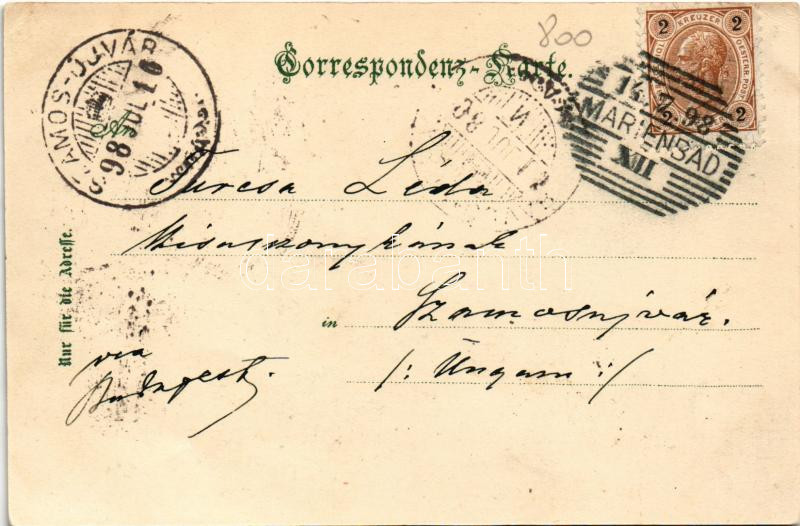 800
Correspondenz-Karte.
2 KREUZER 2
2 2
SZAMOS-ÚJVÁR
98 JUL 16
14. 7. 98
MARIENBAD
XII
An
Turcsa Léda
Kisasszonykának
in Szamosujvár.
/: Ungarn :/
via
Budapest.
Nur für die Adresse.
darabanth